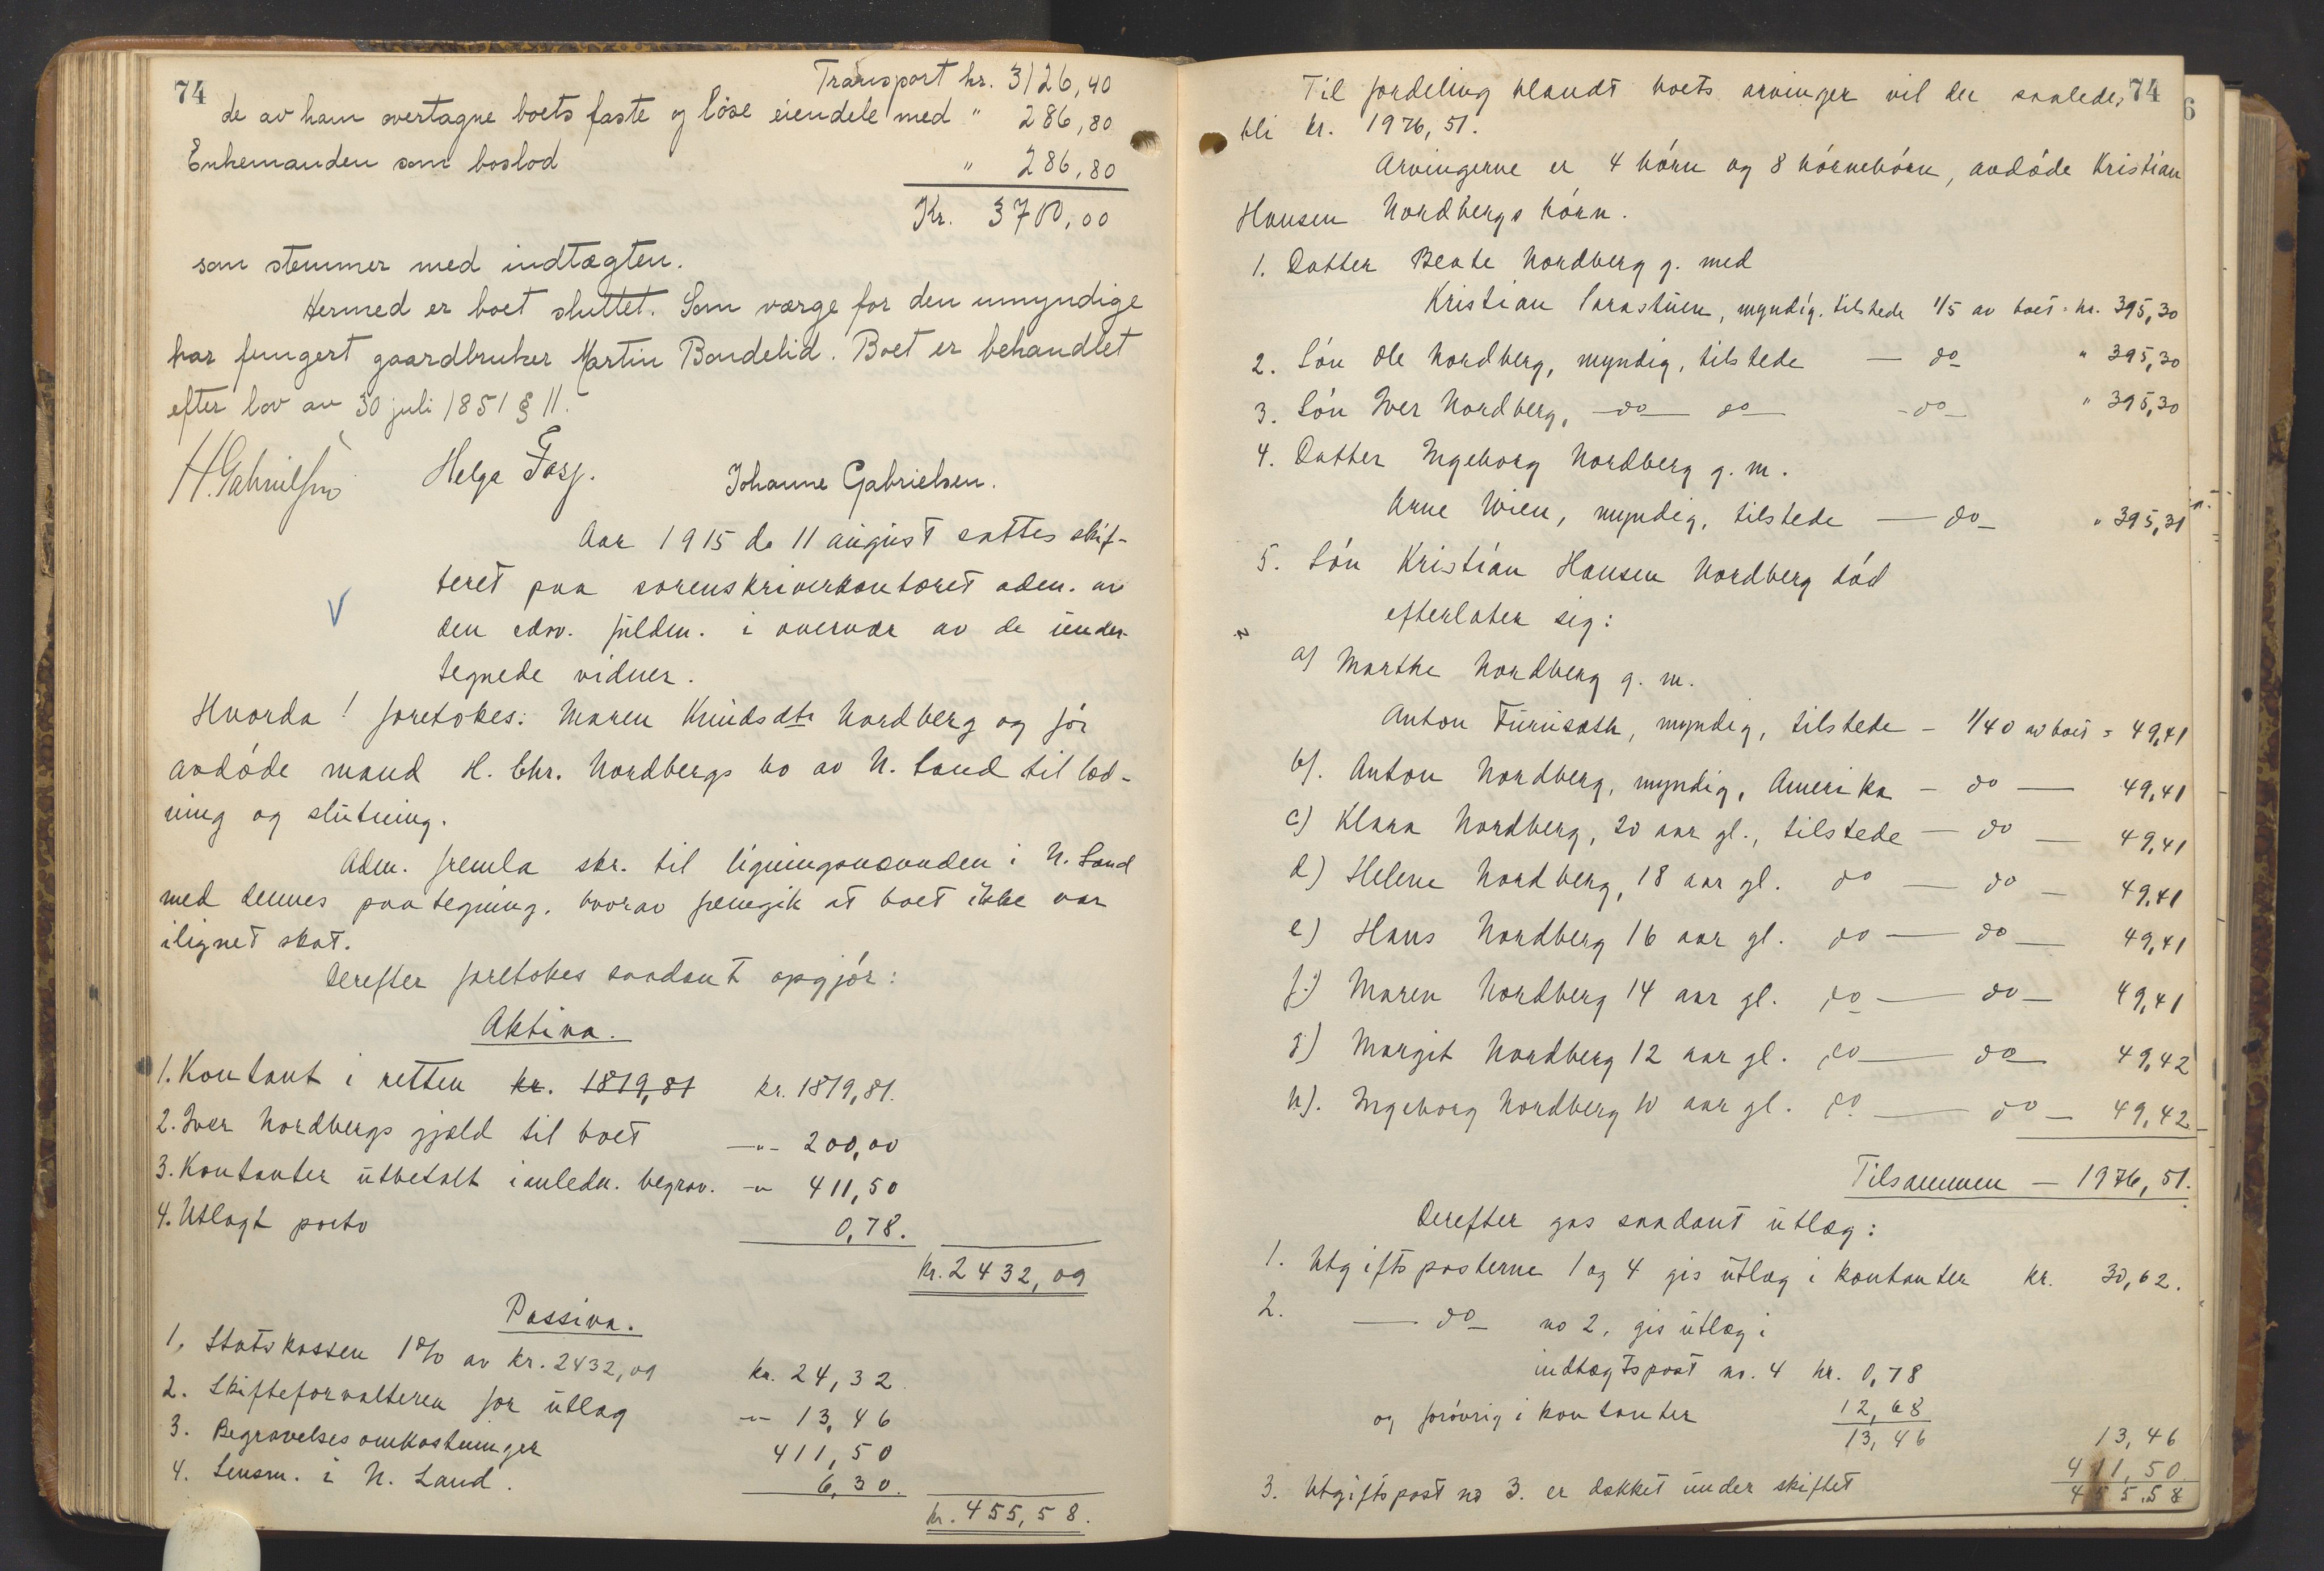 74
Transport kr. 3126,40
de av ham overtagne boets faste og løse eiendele med " 286,80
Enkemanden som boslod " 286,80
Kr. 3700,00
som stemmer med indtægten.
Hermed er boet sluttet. Som værge for den umyndige
har fungert gaardbruker Martin Bondelid. Boet er behandlet
efter lov av 30 juli 1851 § 11.
H. Gabrielsen Helga Fasj. Johanne Gabrielsen.
Aar 1915 d. 11 august sattes skif-
teret paa sorenskriverkontoret adm. av
den edsv. fuldm. i overvær av de under-
tegnede vidner.
V
Hvorda! foretokes: Maren Knudsdtr Nordberg og før
avdøde mand H. Chr. Nordbergs bo av N. Land til lod-
ning og slutning.
Adm. fremla skr. til ligningsnævnden i N. Land
med dennes paategning, hvorav fremgik at boet ikke var
ilignet skat.
Derefter foretokes saadant opgjør:
Aktiva.
1. Kontant i retten kr. 1819,81 kr. 1819,81.
2. Iver Nordbergs gjæld til boet -"- 200,00
3. Kontanter utbetalt i anledn. begrav. -"- 411,50
4. Utlagt porto 0,78.
Kr. 2432,09
Passiva.
1. Statskassen 1% av kr. 2432,09 kr. 24,32
2. Skifteforvalteren for utlæg -"- 13,46
3. Begravelsesomkostninger 411,50
4. Lensm. i N. Land. 6,30.
kr. 455,58.
74
6
Til fordeling blandt boets arvinger vil der saaledes
bli kr. 1976,51.
Arvingerne er 4 børn og 8 børnebørn, avdøde Kristian
Hansen Nordbergs børn.
1. Datter Beate Nordberg g. med
Kristian myndig, tilstede 1/5 av boet = kr. 395,30
2. Søn Ole Nordberg, myndig, tilstede — do " 395,30
3. Søn Iver Nordberg, — do — do — - do - " 395,30
4. Datter Ingeborg Nordberg g. m.
Arne Wien, myndig, tilstede — do - " 395,31
5. Søn Kristian Hansen Nordberg død
efterlater sig:
a) Marthe Nordberg g. m.
Anton Furuseth, myndig, tilstede - 1/40 av boet = 49,41
b). Anton Nordberg, myndig, Amerika - do — 49,41
c) Klara Nordberg, 20 aar gl., tilstede — do — 49,41
d) Helene Nordberg, 18 aar gl. do — do — 49,41
e) Hans Nordberg 16 aar gl. do — do — 49,41
f.) Maren Nordberg 14 aar gl. do — do — 49,41
g) Margit Nordberg 12 aar gl. do — do 49,42
h). Ingeborg Nordberg 10 aar gl. do — do — 49,42
Tilsammen — 1976,51.
Derefter gas saadant utlæg:
1. Utgiftsposterne 1 og 4 gis utlæg i kontanter kr. 30,62.
2. — do — no 2, gis utlæg i
indtægtspost no. 4 kr. 0,78
og forøvrig i kontanter 12,68
13,46 13,46
3. Utgiftspost no 3. er dækket under skiftet 411,50
455,58